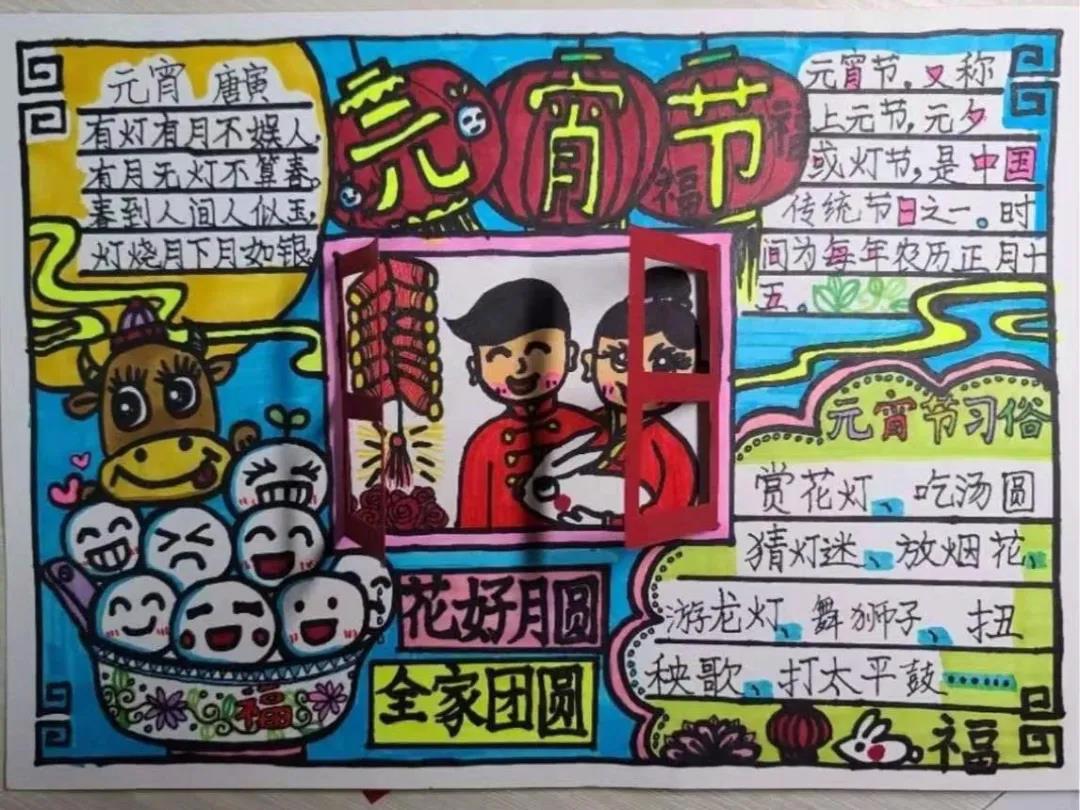 元宵节
元宵 唐寅
有灯有月不娱人,
有月无灯不算春。
春到人间人似玉,
灯烧月下月如银。
元宵节,又称
上元节,元夕
或灯节,是中国
传统节日之一。时
间为每年农历正月十
五。
福
福
元宵节习俗
赏花灯、吃汤圆
猜灯迷、放烟花、
游龙灯、舞狮子、扭
秧歌、打太平鼓……
花好月圆
全家团圆
福
福